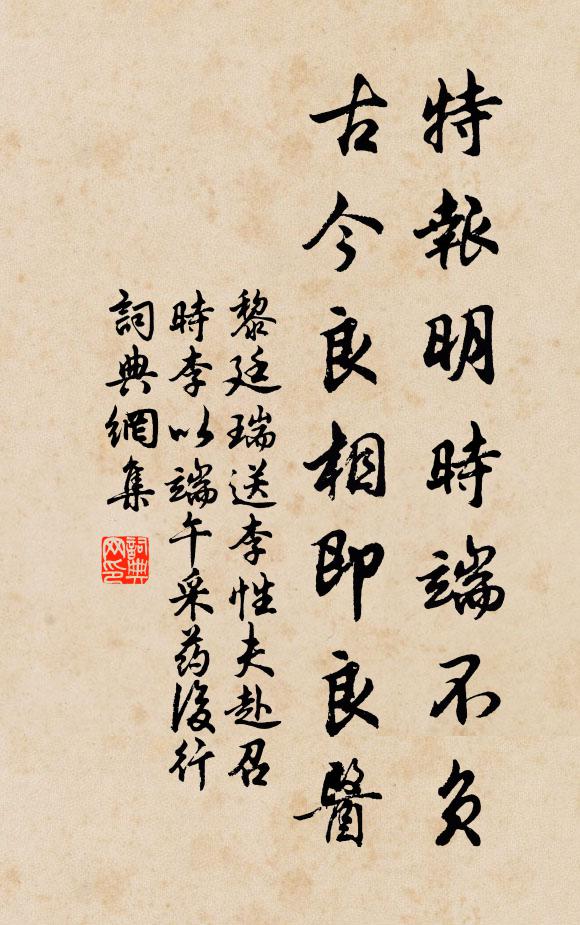 特報明時端不負
古今良相即良醫
黎廷瑞送李性夫赴召
時李以端午采药後行
詞典網集
詞典网印